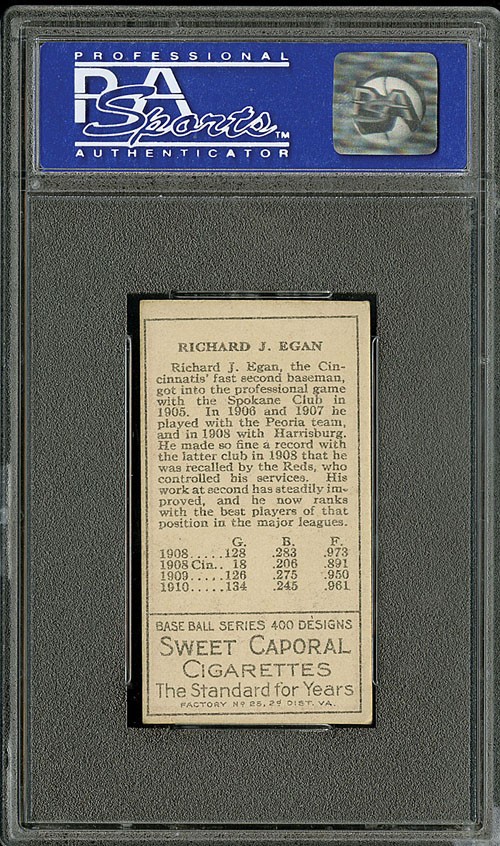 PROFESSIONAL
PSA
Sports™
AUTHENTICATOR
PSA
RICHARD J. EGAN
Richard J. Egan, the Cin-
cinnatis' fast second baseman,
got into the professional game
with the Spokane Club in
1905. In 1906 and 1907 he
played with the Peoria team,
and in 1908 with Harrisburg.
He made so fine a record with
the latter club in 1908 that he
was recalled by the Reds, who
controlled his services. His
work at second has steadily im-
proved, and he now ranks
with the best players of that
position in the major leagues.
G. B. F.
1908.....128 .283 .973
1908 Cin.. 18 .206 .891
1909.....126 .275 .950
1910.....134 .245 .961
BASE BALL SERIES 400 DESIGNS
SWEET CAPORAL
CIGARETTES
The Standard for Years
FACTORY Nº 25, 2ᵈ DIST. VA.